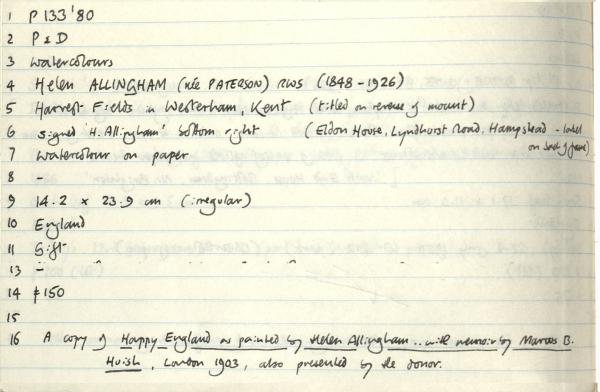 1 P 133 '80
2 P & D
3 Watercolours
4 Helen ALLINGHAM (née PATERSON) RWS (1848-1926)
5 Harvest Fields in Westerham, Kent (titled on reverse of mount)
6 signed 'H. Allingham' bottom right (Eldon House, Lyndhurst Road, Hampstead - label on back of frame)
7 Watercolour on paper
8 -
9 14.2 x 23.9 cm (irregular)
10 England
11 Gift
13 -
14 £150
15
16 A copy of Happy England as painted by Helen Allingham .. with memoir by Marcus B.
Huish, London 1903, also presented by the donor.